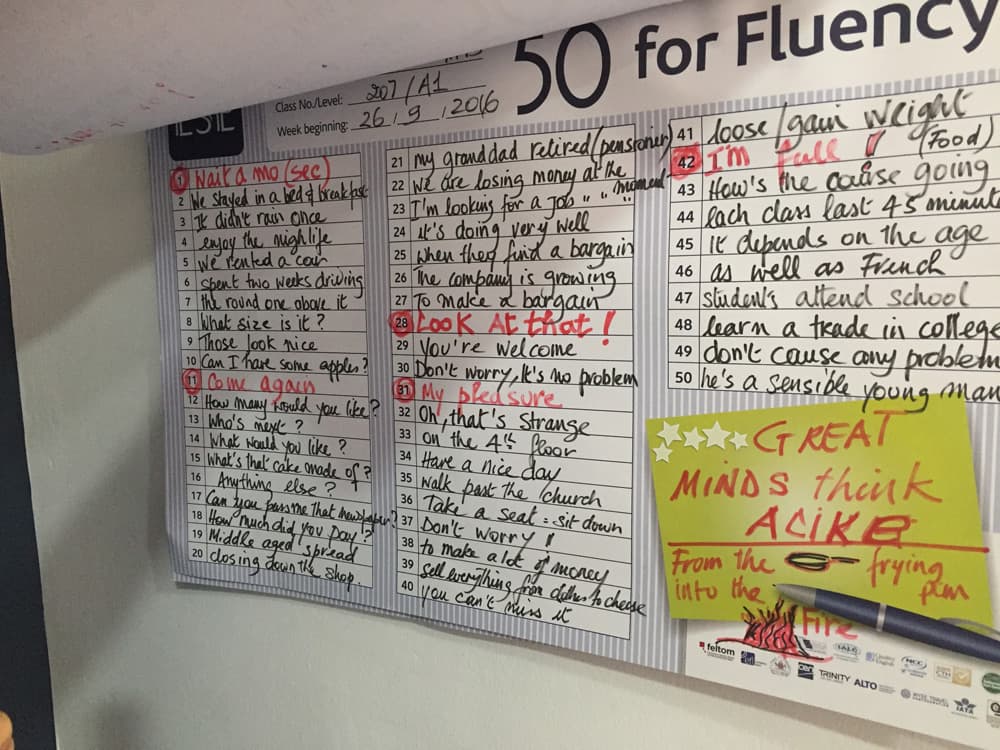 50 for Fluency
Class No./Level: 207/A1
Week beginning: 26,9,2016
ESE
1 Wait a mo (sec)
2 We stayed in a bed & breakfast
3 It didn't rain once
4 enjoy the nighlife
5 we rented a car
6 spent two weeks driving
7 the round one above it
8 What size is it?
9 Those look nice
10 Can I have some apples?
11 Come again
12 How many would you like?
13 Who's next?
14 What would you like?
15 What's that cake made of?
16 Anything else?
17 Can you pass me that newspaper?
18 How much did you pay!?
19 Middle aged spread
20 closing down the shop.
21 my granddad retired (pensioner)
22 We are losing money at the moment
23 I'm looking for a job " " "
24 it's doing very well
25 when they find a bargain
26 The company is growing
27 To make a bargain
28 Look At that!
29 You're welcome
30 Don't worry, It's no problem
31 My pleasure
32 Oh, that's strange
33 on the 4th floor
34 Have a nice day
35 walk past the church
36 Take a seat = sit down
37 Don't worry!
38 to make a lot of money
39 Sell everything from clothes to cheese
40 you can't miss it
41 loose/gain weight
42 I'm full ! (Food)
43 How's the course going
44 each class last 45 minute
45 It depends on the age
46 as well as French
47 student's attend school
48 learn a trade in college
49 don't cause any problem
50 he's a sensible young man
GREAT
MINDS think
ALIKE
From the frying pan
into the
Fire
feltom
IALC
TRINITY
ALTO
WYSE TRAVEL
IATA